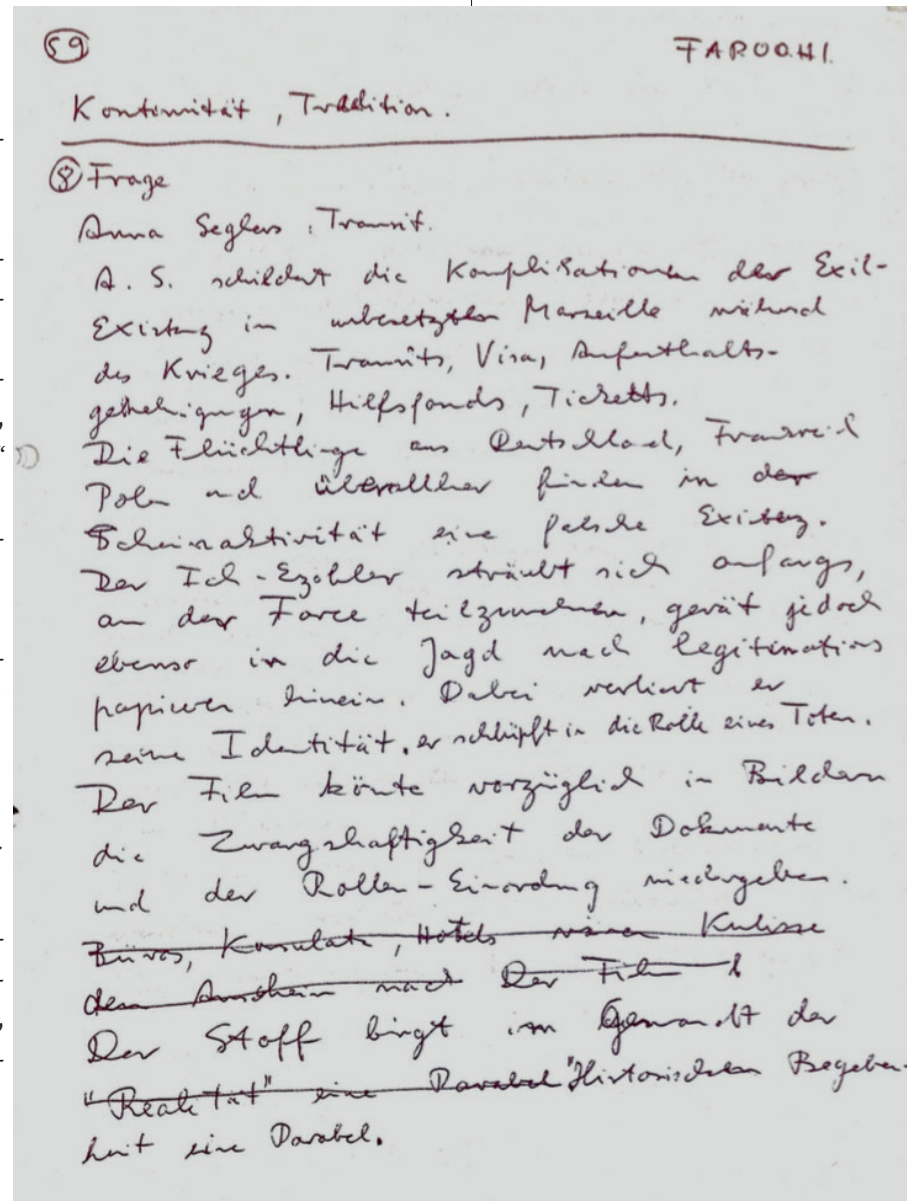 59
FAROCKI.
Kontinuität, Tradition.
8 Frage
Anna Seghers, Transit.
A. S. schildert die Komplikationen der Exil-
Existenz im unbesetzten Marseille während
des Krieges. Transits, Visa, Aufenthalts-
genehmigungen, Hilfsfonds, Ticketts.
Die Flüchtlinge aus Deutschland, Frankreich
Polen und überallher finden in der
Scheinaktivität eine falsche Existenz.
Der Ich-Erzähler sträubt sich anfangs,
an der Farce teilzunehmen, gerät jedoch
ebenso in die Jagd nach Legitimations
papieren hinein. Dabei verliert er
seine Identität, er schlüpft in die Rolle eines Toten.
Der Film könnte vorzüglich in Bildern
die Zwanghaftigkeit der Dokumente
und der Rollen-Einordnung wiedergeben.
Büros, Konsulate, Hotels wären Kulisse
dem Anschein nach Der Film
Der Stoff birgt im Gewandt der
"Realität" eine Parabel "Historischen Begeben-
heit eine Parabel.